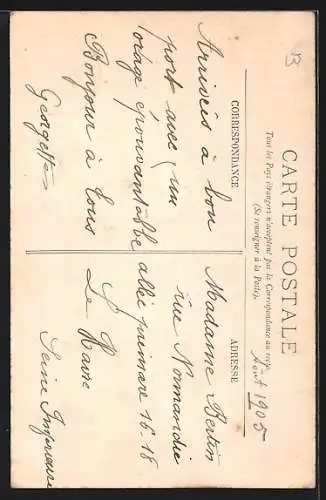 CARTE POSTALE
Tous les Pays étrangers n'acceptent pas la Correspondance au recto
(Se renseigner à la Poste).
Août 1905
CORRESPONDANCE
Arrivées à bon
port avec un
orage épouvantable
Bonjour à tous
Georgette
ADRESSE
Madame Bertin
rue Normandie
allée 16-18
Le Havre
Seine Inférieure
13